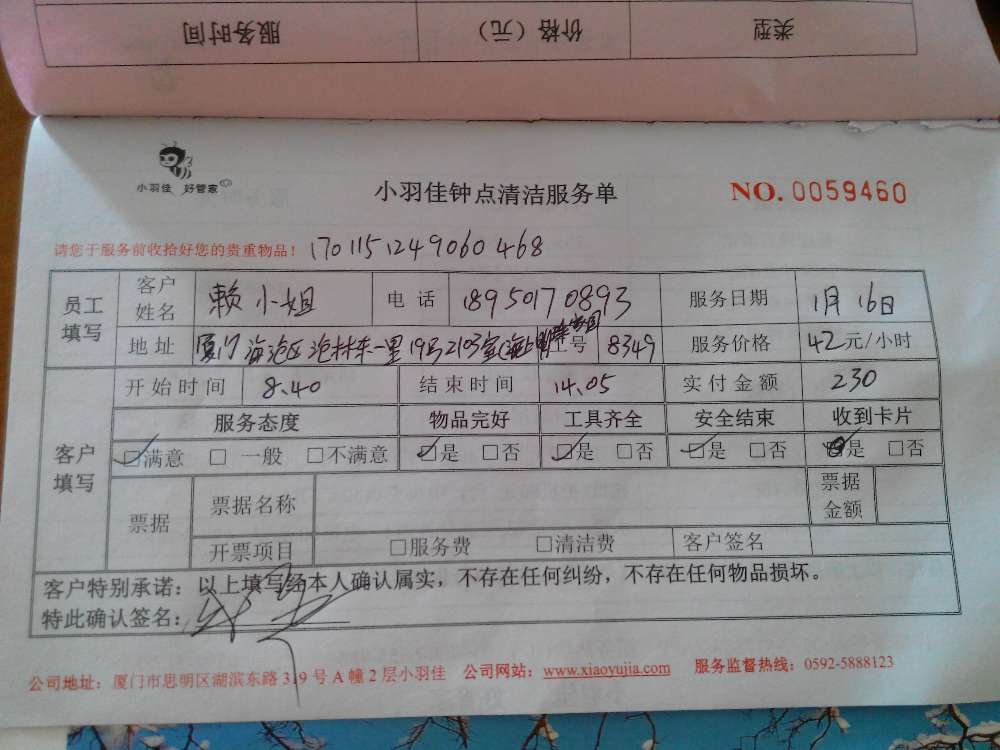 服务时间 价格（元） 类型
小羽佳 好管家
小羽佳钟点清洁服务单
NO. 0059460
请您于服务前收拾好您的贵重物品！ 1701151249060468
员工填写 客户姓名 赖小姐 电话 18950170893 服务日期 1月16日
地址 厦门海沧区沧林东一里19号2103室 工号 8349 服务价格 42元/小时
客户填写 开始时间 8.40 结束时间 14.05 实付金额 230
服务态度 物品完好 工具齐全 安全结束 收到卡片
☑满意 □一般 □不满意 ☑是 □否 ☑是 □否 ☑是 □否 ☑是 □否
票据 票据名称 票据金额
开票项目 □服务费 □清洁费 客户签名
客户特别承诺：以上填写经本人确认属实，不存在任何纠纷，不存在任何物品损坏。
特此确认签名：
公司地址：厦门市思明区湖滨东路319号A幢2层小羽佳 公司网站：www.xiaoyujia.com 服务监督热线：0592-5888123